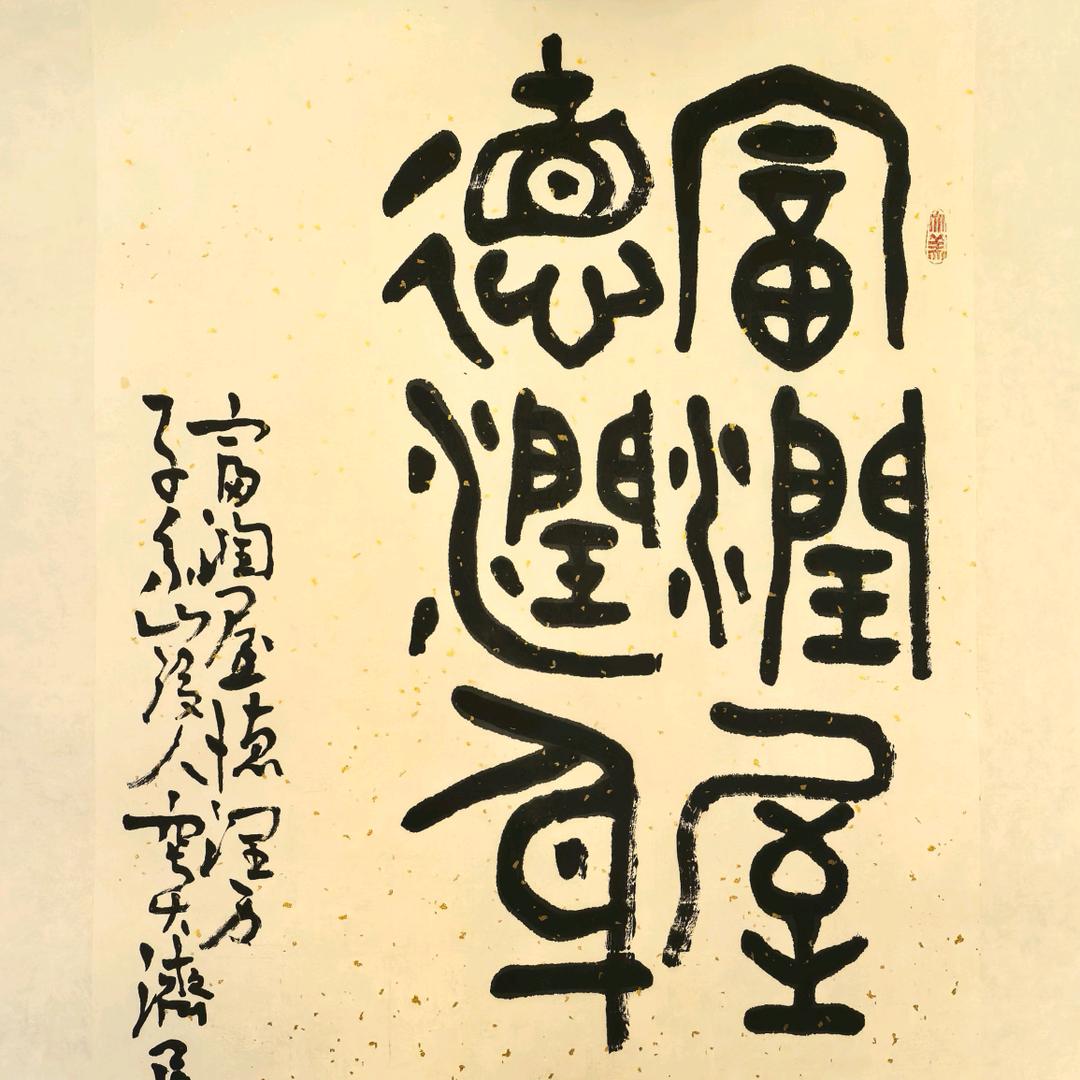 富潤屋
德潤身
富潤屋德潤身
子和山度人
大濟